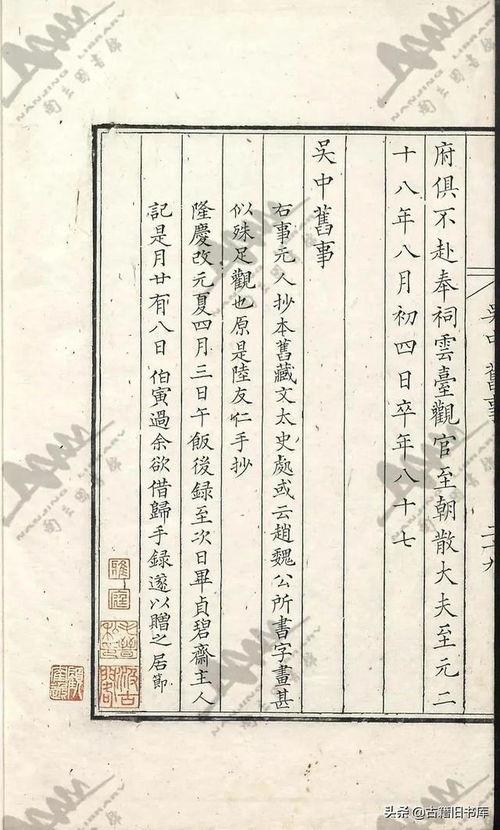 府俱不赴奉祠雲臺觀官至朝散大夫至元二
十八年八月初四日卒年八十七
吳中舊事
右事元人抄本舊藏文太史處或云趙魏公所書字畫甚
似殊足觀也原是陸友仁手抄
隆慶改元夏四月三日午飯後録至次日畢貞碧齋主人
記是月廿有八日 伯寅過余欲借歸手録遂以贈之居節
吳中舊事
汲古
閣
NANJING LIBRARY
南京圖書館
头条 @古籍旧书库